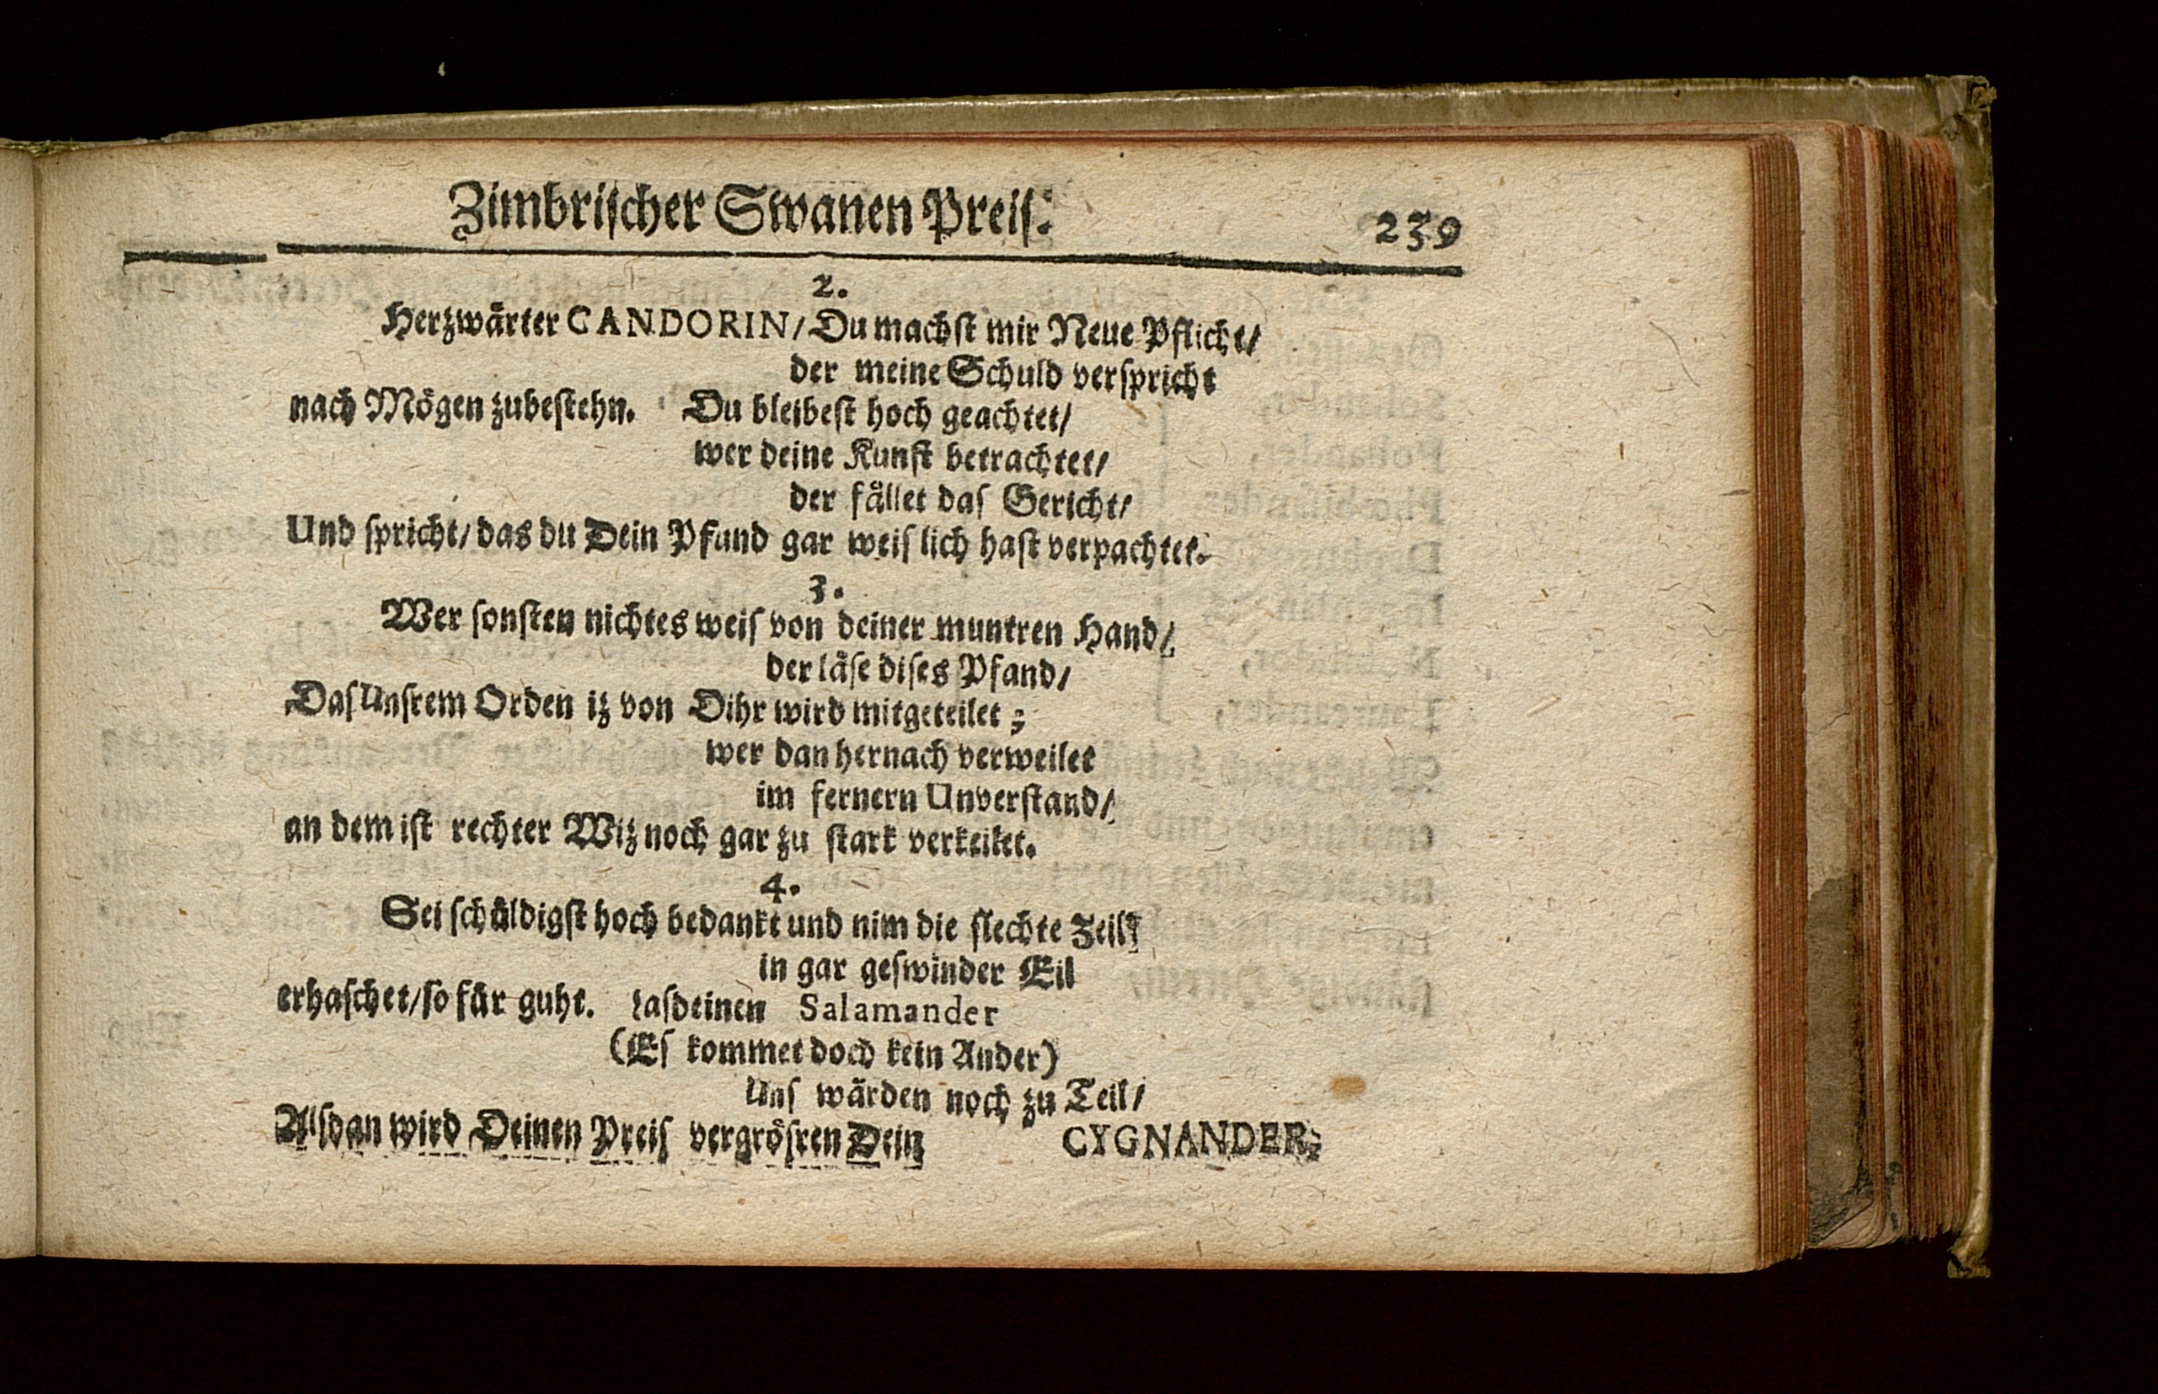 Zimbriſcher Swanen Preiſ. 239
2.
Herzwärter CANDORIN/ Du machſt mir Neue Pflicht/
der meine Schuld verſpricht
nach Mögen zubeſtehn. Du bleibeſt hoch geachtet/
wer deine Kunſt betrachtet/
der fället daſ Gericht/
Und ſpricht/ das du Dein Pfund gar weiſlich haſt verpachtet.
3.
Wer ſonſten nichtes weiſ von deiner muntren Hand/
der läſe diſes Pfand/
Daſ Unſrem Orden iz von Dihr wird mitgeteilet;
wer dan hernach verweilet
im fernern Unverſtand/
an dem iſt rechter Wiz noch gar zu ſtark verkeilet.
4.
Sei ſchüldigſt hoch bedankt und nim die ſlechte Zeil/
in gar geſwinder Eil
erhaſchet/ ſo für guht. Laſ deinen Salamander
(Eſ kommet doch kein Ander)
Unſ wärden noch zu Teil/
Alſdan wird Deinen Preiſ vergröſren Dein CYGNANDER.